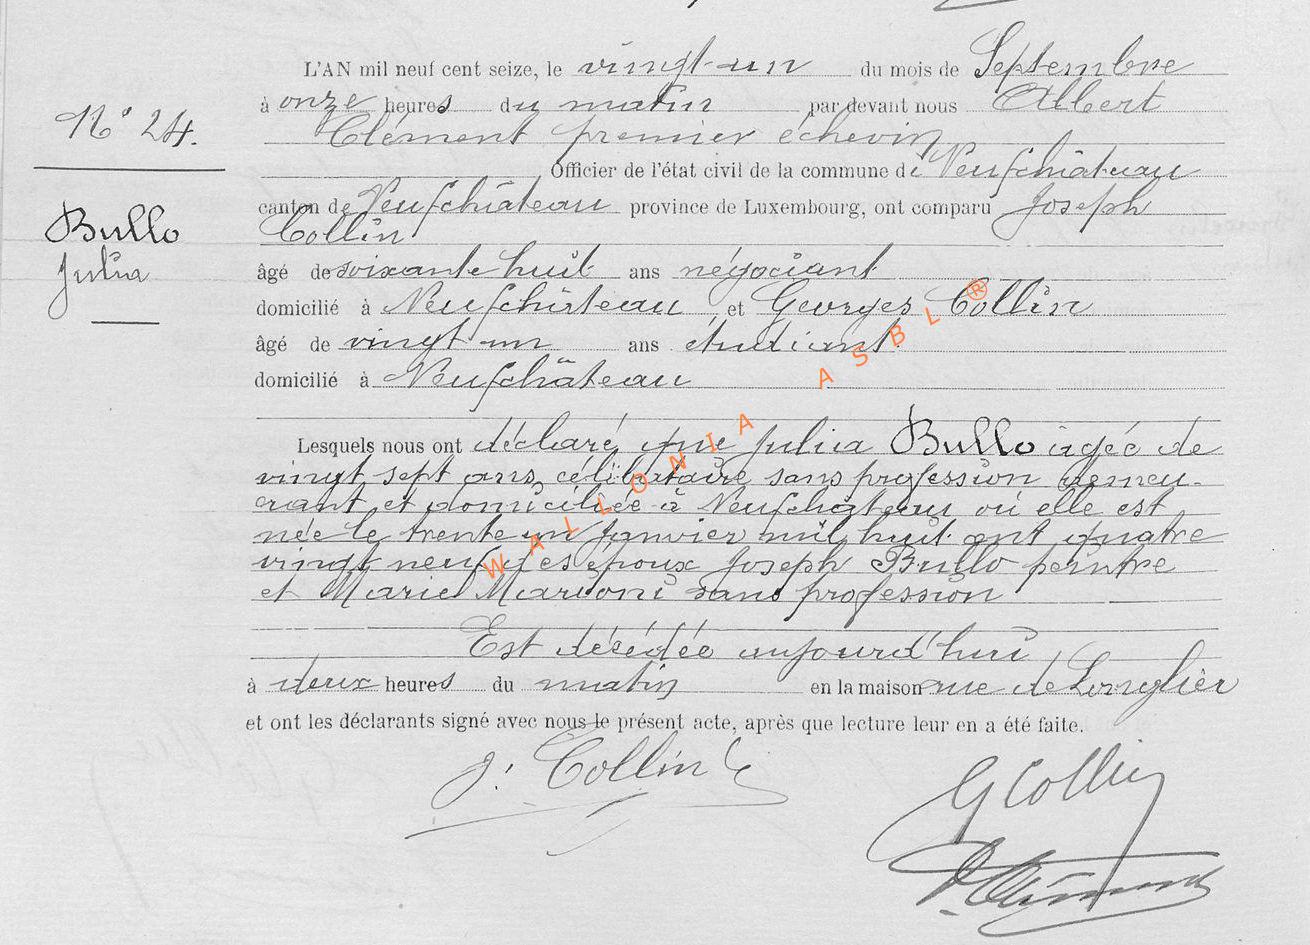 L'AN mil neuf cent seize, le vingt-un du mois de Septembre
à onze heures du matin par devant nous Albert
Clément premier échevin
Officier de l'état civil de la commune de Neufchâteau
canton de Neufchâteau province de Luxembourg, ont comparu Joseph
Collin
âgé de soixante huit ans négociant
domicilié à Neufchâteau, et Georges Collin
âgé de vingt un ans étudiant
domicilié à Neufchâteau
Lesquels nous ont déclaré que Julia Bullo âgée de
vingt sept ans, célibataire sans profession demeu-
rant et domiciliée à Neufchâteau où elle est
née le trente un Janvier mil huit cent quatre
vingt neuf, des époux Joseph Bullo peintre
et Marie Marioni sans profession
Est décédée aujourd'hui
à deux heures du matin en la maison rue de Longlier
et ont les déclarants signé avec nous le présent acte, après que lecture leur en a été faite.
N° 24.
Bullo
Julia
J. Collin
G Collin
WALLONIA ASBL ®